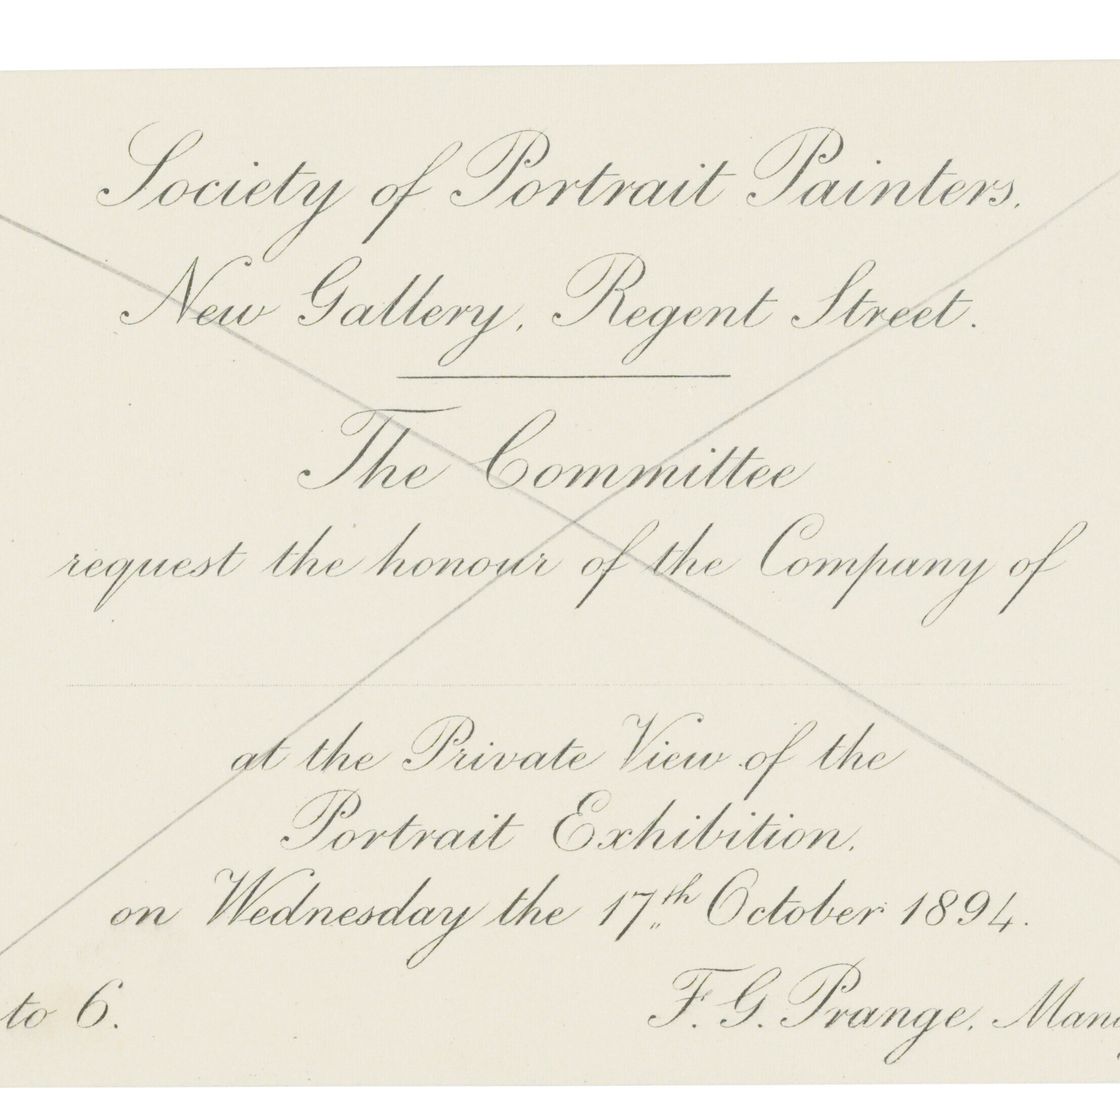 Society of Portrait Painters.
New Gallery, Regent Street.
The Committee
request the honour of the Company of
at the Private View of the
Portrait Exhibition.
on Wednesday the 17th October 1894.
to 6. F. G. Prange,